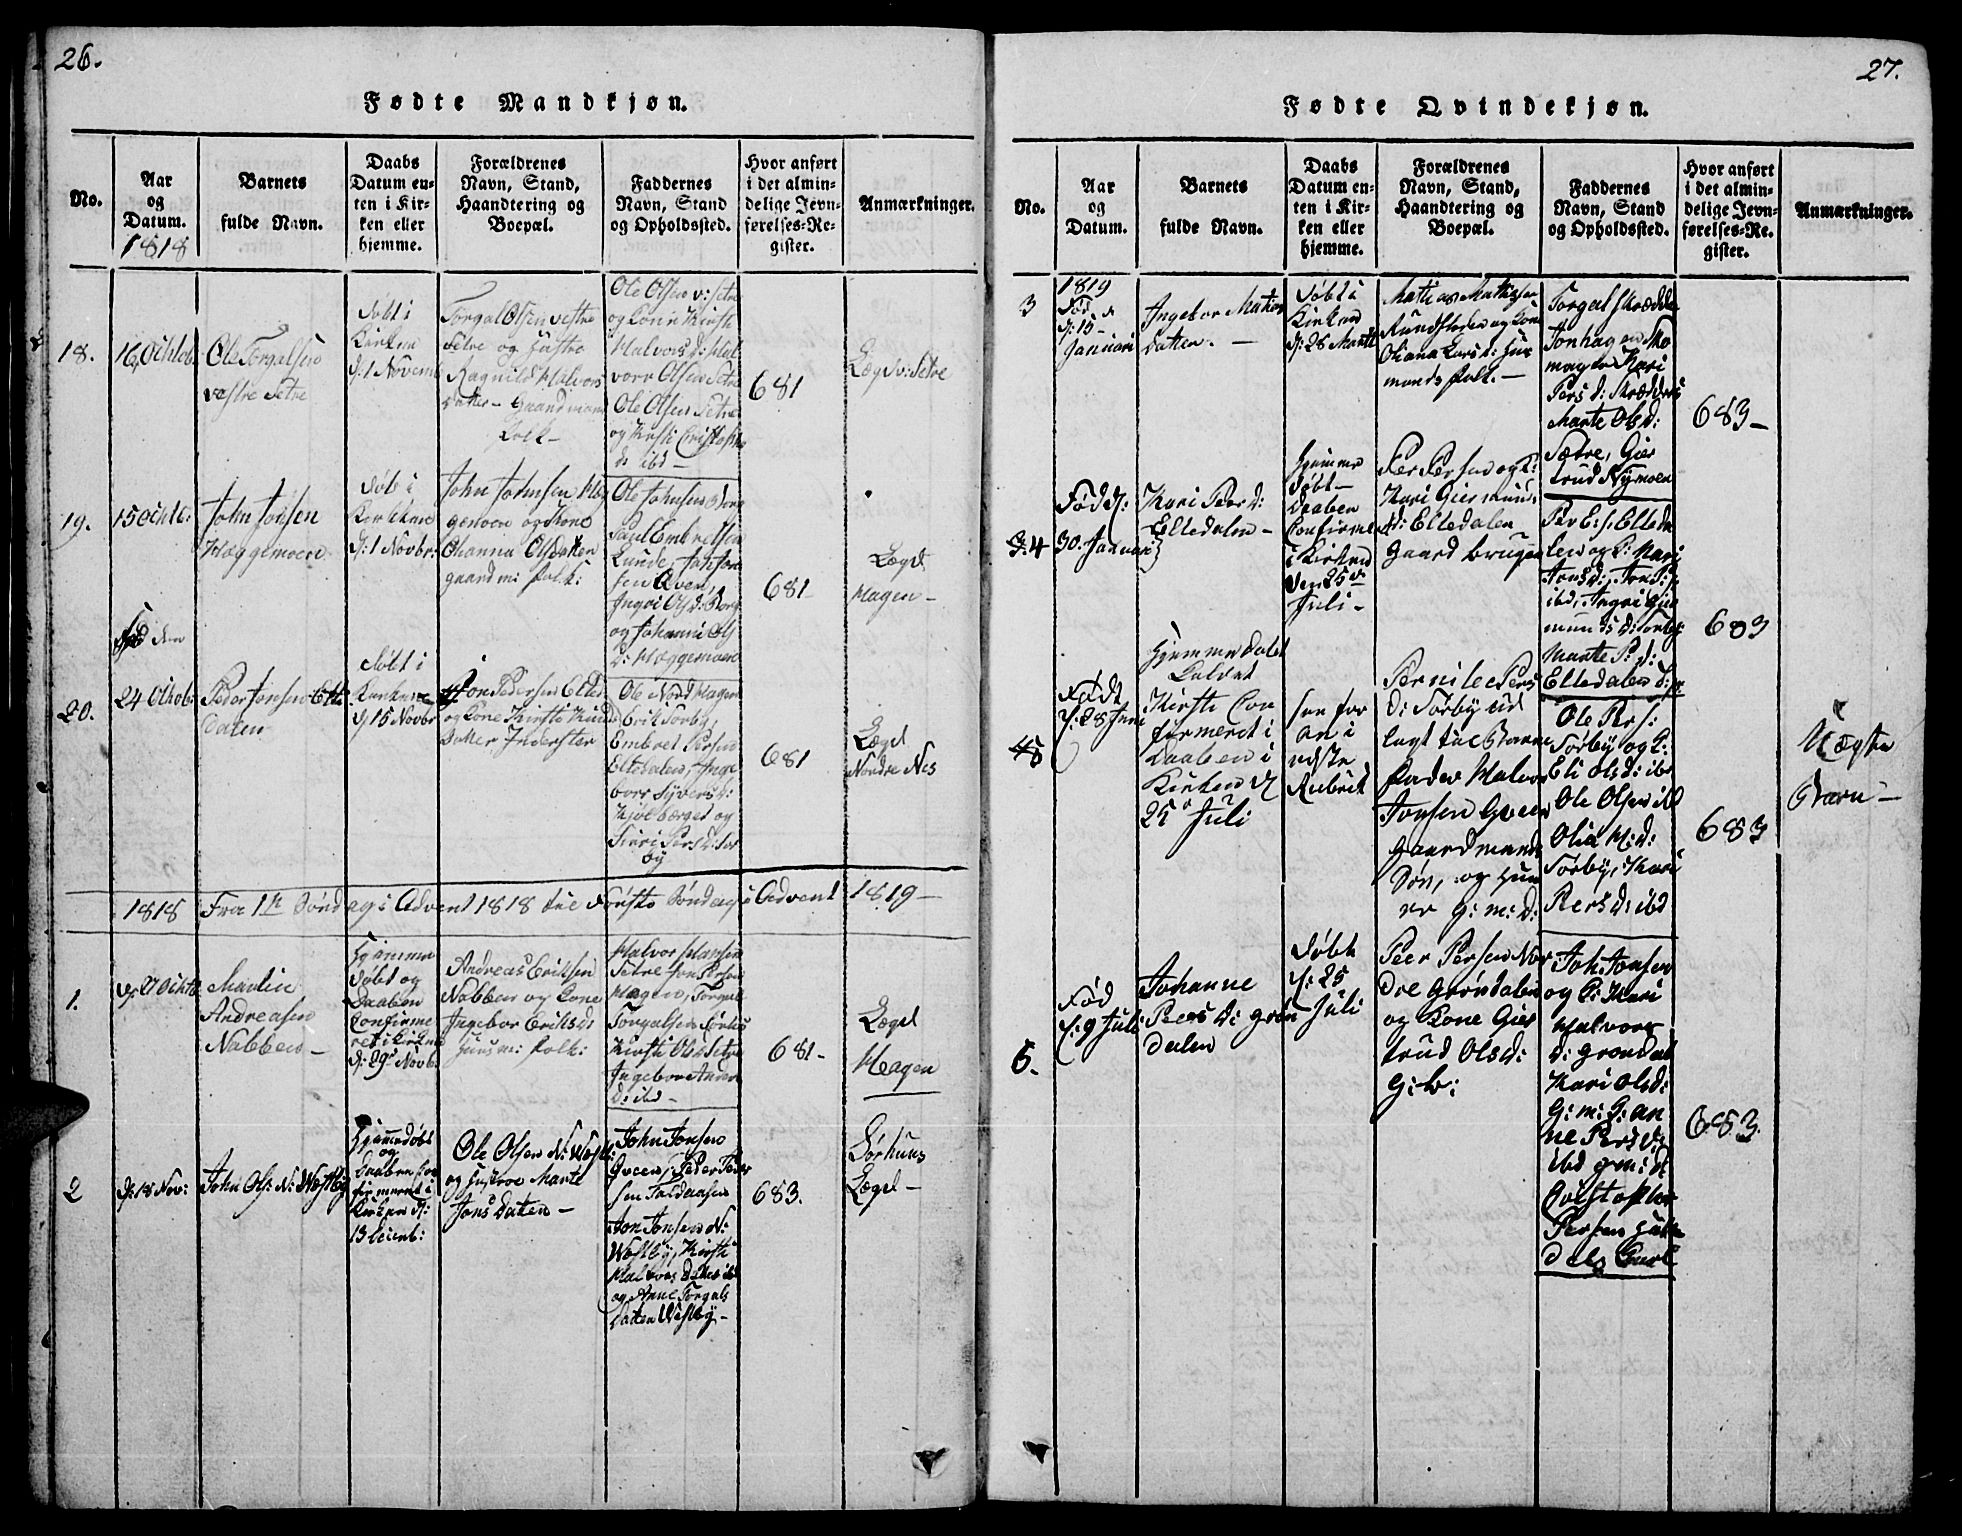 26.
Fødte Mandkjøn.
No.
Aar
og
Datum.
1818
Barnets
fulde Navn.
Daabs
Datum en-
ten i Kir-
ken eller
hjemme.
Forældrenes
Navn, Stand,
Haandtering og
Boepæl.
Faddernes
Navn, Stand
og Opholdssted.
Hvor anført
i det almin-
delige Jevn-
førelses-Re-
gister.
Anmærkninger.
18.
16 Octob
Ole Torgalsen
vestre Setre
døbt i
Kirken
d: 1 Novemb
Torgal Olsen vestre
Setre og Hustro
Ragnild Halvors
datter - Gaardmans
Folk -
Ole Olsen v: Setre
og Kone Kirsti
Halvors d: Hal
vorr Olsen Setre
Ole Olsen Setre
og Kirsti Cristophe
d: ibd -
681
Lægd v: Setre
19.
15 Octb:
John Jonsen
Hæggemoen
døbt i
Kirken
d: 1 Novbr:
John Johnsen Hæg
gemoen og Kone
Ohanna Olsdatter
gaard m: folk:
Ole Johnsen Berg
Paul Embretsen
Lunde, Jo Jon
sen Qven,
Ingri Ols d: Berg
og Johanni Ols
d: Hæggemoen
681
Lægd
Hagen -
20.
Fød den
24 Octob:
Peder Jonsen Elte
dalen
døbt i
Kirken
d: 15 Novbr
Jon Pedersen Elted
og Kone Kirsti Knud
datter Inderster
Ole Nord Hagen
Erik Sorby,
Embret Persen
Eltedalen, Inge
borr Syvers d:
Kjølberget og
Siri Pers d: Sor
by
681
Lægd
Nordre Nes
1818 Fra 1te Søndag i Advent 1818 til Første Søndag i Advent 1819 -
1.
d: 7 Octb
Martin
Andreasen
Nabben -
Hjemme
døbt og
Daaben
Confirme
ret i Kirken
d: 29de Novb.
Andreas Eriksen
Nabben og Kone
Ingebor Eriksd:
Huusm: folk:
Halvor Hansen
Setre Jon Persen
Hagen, Torgal
Torgalsen
Kirsti Olsd: Setre
Ingebor Anders
d: ibd -
681 -
Lægd
Hagen
2
d: 18 Nov:
John Ols: N: Westby
Hjemmedøbt
og
Daaben Con
firmeret i
Kirken d:
13 Decemb:
Ole Olsen N: Westb:
og Hustroe Marte
Jons Datter -
John Jonsen
Qveen, Peder Peder
sen Faldaasen
Jon Jonsen N:
Westby, Kirsti
Halvors datter ibd
og Anne Torgals
datter Westby -
683.
Sørhuus
Lægd -
27.
Fødte Qvindekjøn.
No.
Aar
og
Datum.
Barnets
fulde Navn.
Daabs
Datum en-
ten i Kir-
ken eller
hjemme.
Forældrenes
Navn, Stand,
Haandtering og
Boepæl.
Faddernes
Navn, Stand
og Opholdssted.
Hvor anført
i det almin-
delige Jevn-
førelses-Re.
gister.
Anmærkninger.
3
1819
Fød
d: 15 -
Januari
Ingebor Matias
datter. -
døbt i
Kirken
d: 28 Marti
Matias Mathisen
Rundfloden og Kone
Oliana Lars d: Huus
mands folk. -
Torgal Skrædder
Jonhagen Sko
mager Kari
Pers d: Skrædders
Marte Ols d:
Sætre, Gier
trud Nymoen
683 -
4
Fød d:
30. Januari
Kari Peers d:
Eltedalen -
Hjemme
døbt -
Daaben
Confirmeret
i Kirken
den 25de
Juli -
Per Persen og K:
Kari Giermun
d: Eltedalen
Gaardbruger
Per E: s: Elteda
len og K: Mari
Jonsd:, Jon P: s:
ibd:, Ingri Gier
munds d: Sorby:
Marte P: d:
Eltedalen
683
5
Født
d: 28 Juni
Hjemmedøbt
Kaldet
Kirsti Con
firmeret i
Daaben i
Kirken d:
25de Juli
see for
an i
næste
Rubrik
Pernille Pers
d: Sørby ud
lagt til Barne
fader Halvor
Jonsen Qveen
Gaardmands
Søn, og Hun
er G: m: d:
Ole Pers:
Sørby og K:
Eli Ols d: ibd
Ole Olsen ibd
Olia H: d:
Sørby, Kari
Pers d: ibd
683
Uægte
Barn -
6.
Fød
d: 9 Juli
Johanne
Peers d: Grøn
dalen
døbt
d: 25
Juli
Peer Persen Nor
dre Grøndalen
og Kone Gier
trud Ols d:
G: b:
Joh: Jonsen
og K: Kari
Halvors
d: Grøndal
Kari Olsd:
G: m: d: An
ne Pers d:
ibd g m: d
Cristopher
Persen
dals Karl
683.